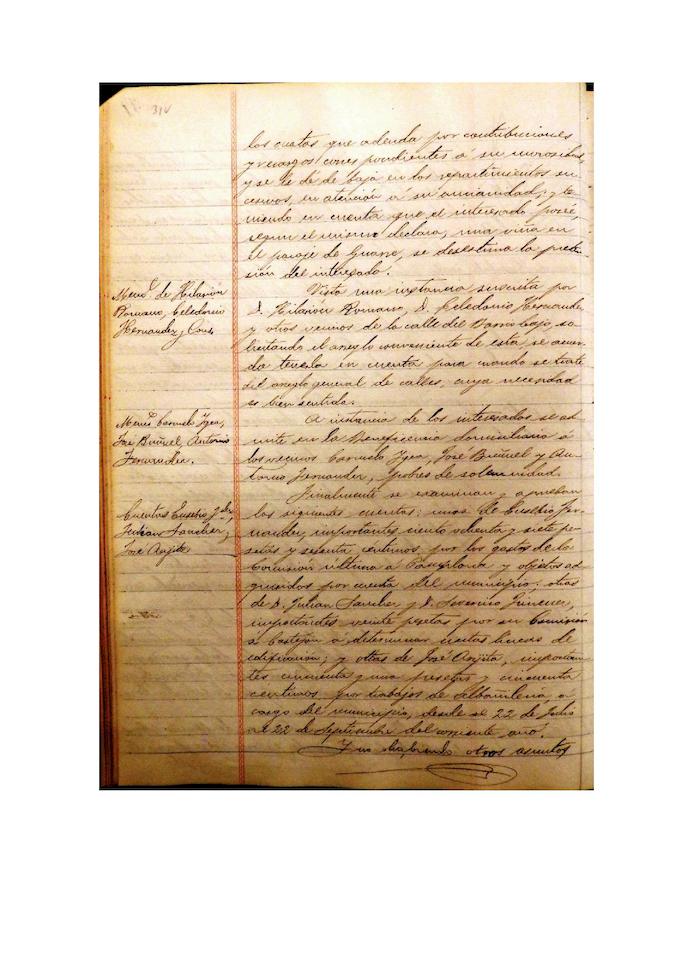 314
las cuotas que adeuda por contribuciones
y recargos correspondientes á su morosidad,
y se le dé de baja en los repartimientos su-
cesivos, en atención á su ancianidad; y te-
niendo en cuenta que el interesado posée,
segun el mismo declara, una viña en
el paraje de se desestima la preten-
sión del interesado.
Meml. de Hilarión
Romano, Celedonio
Hernandez y Cons.
Vista una instancia suscrita por
D. Hilarión Romano, D. Celedonio Hernandez
y otros vecinos de la calle del Barrio bajo so-
licitando el arreglo conveniente de esta, se acuer-
da tenerla en cuenta para cuando se trate
del arreglo general de calles, cuya necesidad
es bien sentida.
José Buñuel, Antonio
Fernandez.
A instancia de los interesados se ad-
mite en la Beneficencia domiciliaria á
los vecinos José Buñuel y An-
tonio Fernandez, pobres de solemnidad.
Cuentas Eusebio
Julian Sanchez,
José Anjita
Finalmente se examinan y aprueban
las siguientes cuentas: unas de Eusebio Fer-
nandez, importantes ciento ochenta y siete pe-
setas y sesenta centimos, por los gastos de la
Comisión última á Pamplona y objetos ad-
quiridos por cuenta del municipio; otras
de D. Julian Sanchez y D. Severino Gimenez,
importantes veinte pesetas por su Comisión
á Castejón á determinar ciertas lineas de
edificación; y otras de José Anjita, importan-
tes cincuenta y una pesetas y cincuenta
centimos por trabajos de albañileria, a
cargo del municipio, desde el 22 de Julio
al 22 de Septiembre del corriente año.
Y no habiendo otros asuntos